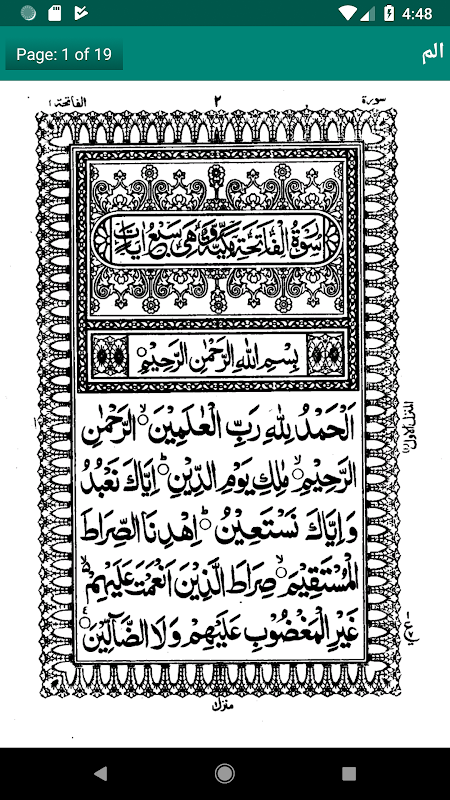 4:48
Page: 1 of 19
الم
سورة
٢
الفاتحة ١
سُوْرَةُ الْفَاتِحَةِ مَكِّيَّةٌ وَّهِيَ سَبْعُ اٰيَاتٍ
بِسْمِ اللهِ الرَّحْمٰنِ الرَّحِيْمِ
اَلْحَمْدُ لِلّٰهِ رَبِّ الْعٰلَمِيْنَ ۙ الرَّحْمٰنِ
الرَّحِيْمِ ۙ مٰلِكِ يَوْمِ الدِّيْنِ ؕ اِيَّاكَ نَعْبُدُ
وَاِيَّاكَ نَسْتَعِيْنُ ؕ اِهْدِنَا الصِّرَاطَ
الْمُسْتَقِيْمَ ۙ صِرَاطَ الَّذِيْنَ اَنْعَمْتَ عَلَيْهِمْ ۙ
غَيْرِ الْمَغْضُوْبِ عَلَيْهِمْ وَلَا الضَّآلِّيْنَ
المنزل الاول
منزل